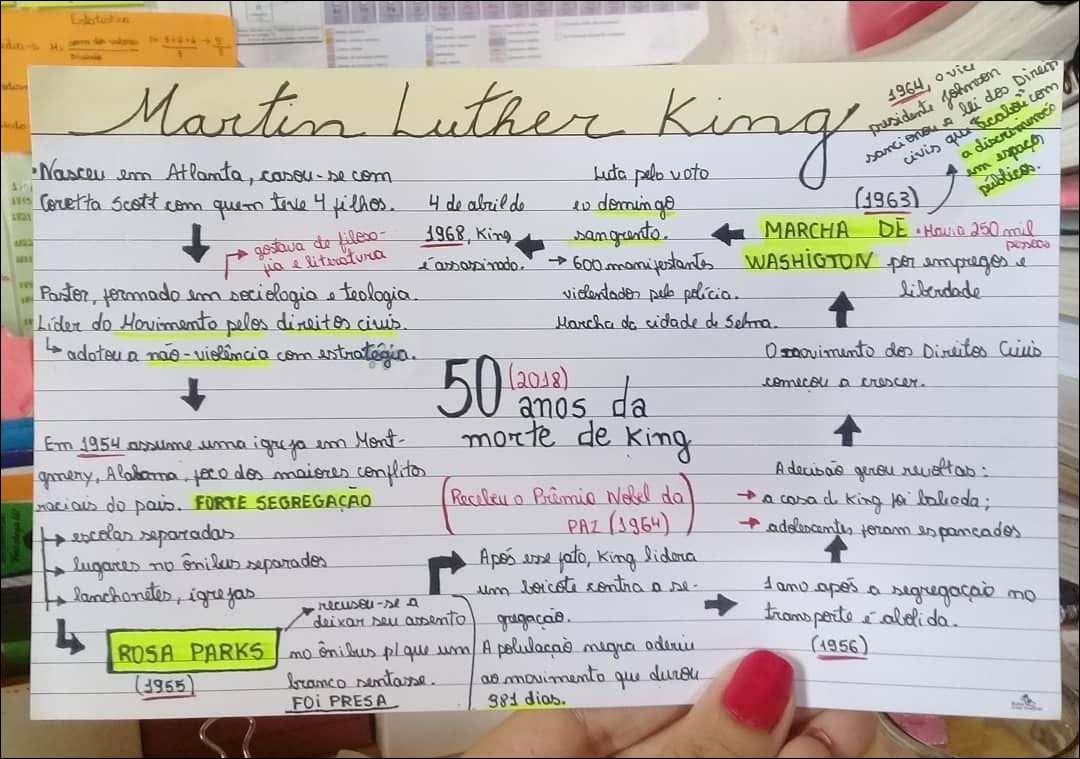 Estatística
Martin Luther King
1964, o vice
presidente Johnson
sancionou a lei dos Direitos
civis que "acabou" com
a discriminação
em espaços
públicos.
• Nasceu em Atlanta, casou-se com
Coretta Scott com quem teve 4 filhos.
gostava de filoso-
fia e literatura
Pastor, formado em sociologia e teologia.
Líder do Movimento pelos direitos civis.
adotou a não-violência com estratégia.
Em 1954 assume uma igreja em Mont-
gmery, Alabama, foco dos maiores conflitos
raciais do país. FORTE SEGREGAÇÃO
→ escolas separadas
→ lugares no ônibus separados
→ lanchonetes, igrejas
ROSA PARKS
(1955)
recusou-se a
deixar seu assento
no ônibus p/ que um
branco sentasse.
FOi PRESA
Após esse fato, King lidera
um boicote contra a se-
gregação.
A população negra aderiu
ao movimento que durou
981 dias.
1 ano após a segregação no
transporte é abolida.
(1956)
A decisão gerou revoltas:
→ a casa de King foi baleada;
→ adolescentes foram espancados
O movimento dos Direitos Civis
começou a crescer.
(1963)
MARCHA DE
WASHIGTON
• Havia 250 mil
pessoas
por empregos e
liberdade
Luta pelo voto
eo domingo
sangrento.
→ 600 manifestantes
violentados pela polícia.
Marcha da cidade de Selma.
4 de abril de
1968, King
é assassinado.
50 (2018)
anos da
morte de King
(Recebeu o Prêmio Nobel da
PAZ (1964))